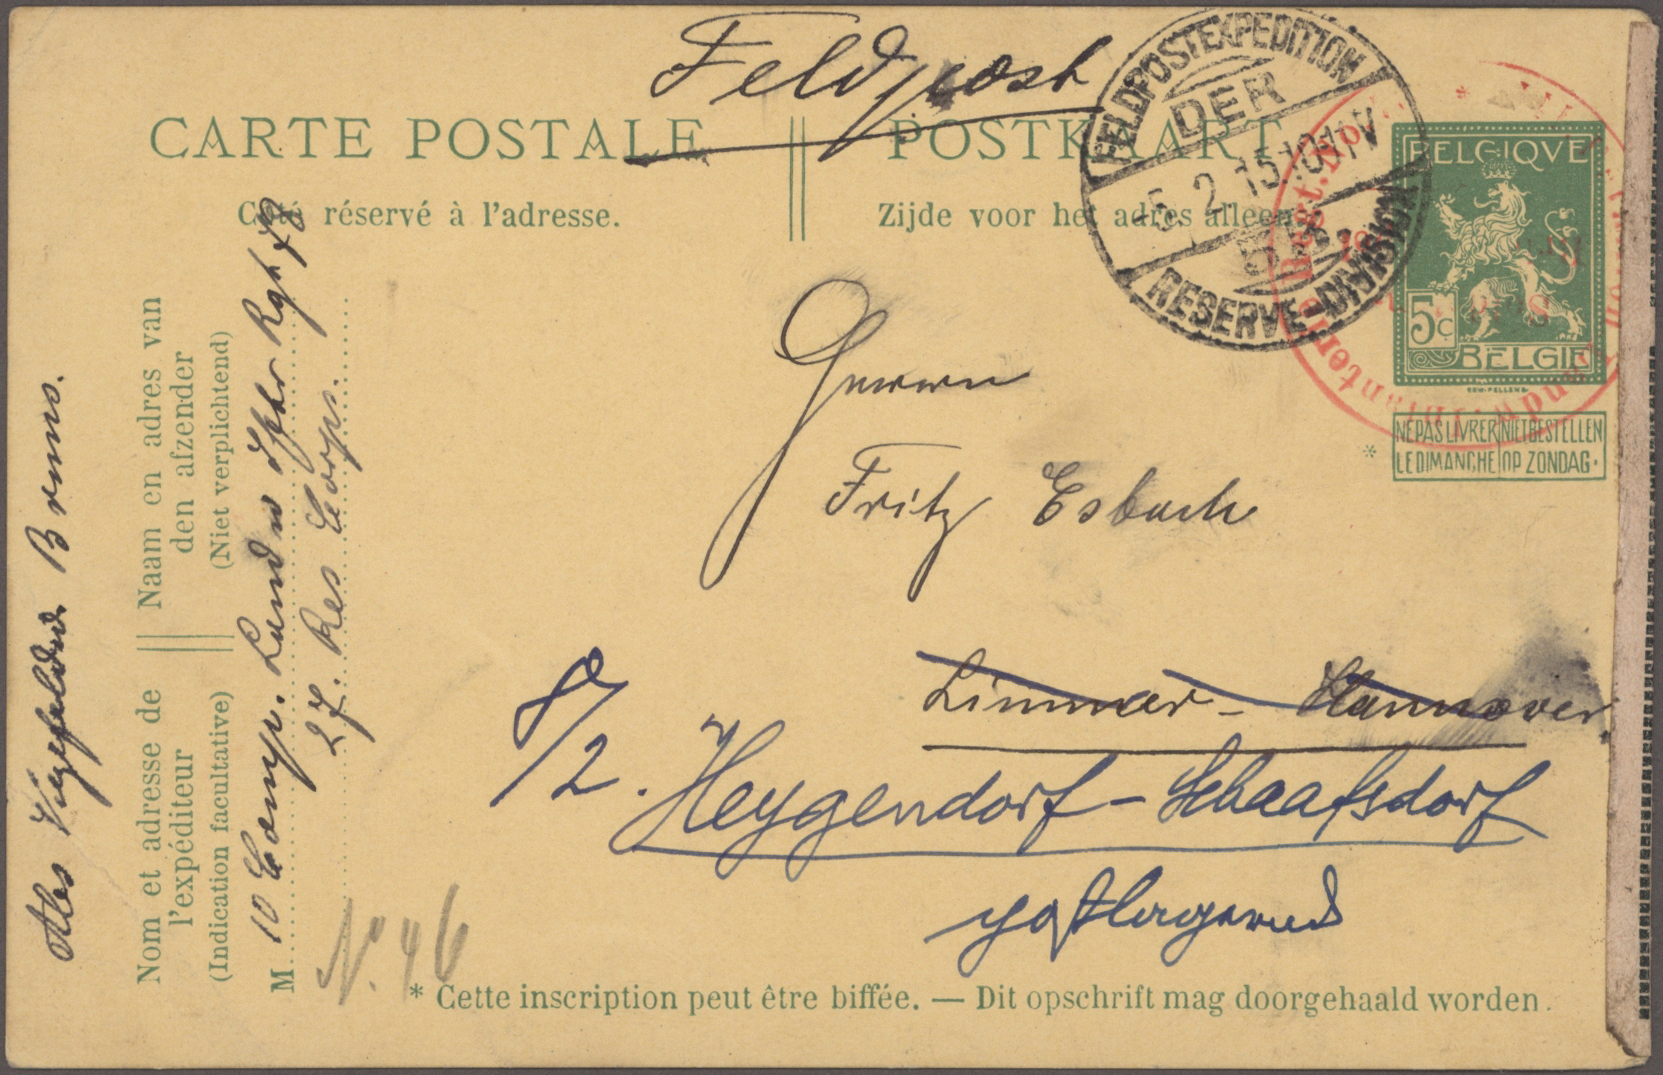 Feldpost
CARTE POSTALE
POSTKAART
Côté réservé à l'adresse.
Zijde voor het adres alleen
FELDPOSTEXPEDITION
DER
-5. 2. 15. 10-11 V
RESERVE-DIVISION
BELGIQVE
5c
BELGIE
NE PAS LIVRER LE DIMANCHE
NIET BESTELLEN OP ZONDAG.
*
Herrn
Fritz Esbach
Limmer - Hannover
8/2. Heygendorf - Schaafsdorf
postlagernd
Naam en adres van
den afzender
(Niet verplichtend)
Nom et adresse de
l'expéditeur
(Indication facultative)
Abs Vizefeldw Brems.
M 10 Comp. Landw Rgt 78
27. Res Corps.
N. 46
* Cette inscription peut être biffée. — Dit opschrift mag doorgehaald worden.